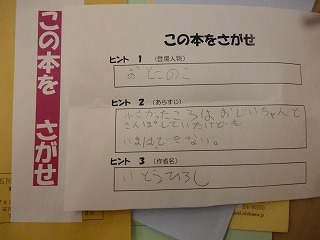 この本を さがせ
この本をさがせ
ヒント 1 (登場人物)
おとこのこ
ヒント 2 (あらすじ)
小さかったころはおじいちゃんと
さんぽしていたけども
いまはできない。
ヒント 3 (作者名)
いとうひろし